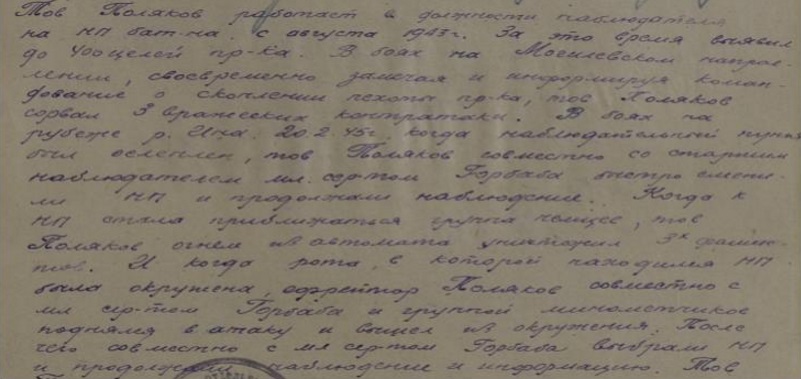 Тов Поляков работает в должности наблюдателя
на НП бат-на с августа 1943 г. За это время выявил
до 400 целей пр-ка. В боях на Могилевском направ-
лении, своевременно замечая и информируя коман-
дование о скоплении пехоты пр-ка, тов Поляков
сорвал 3 вражеских контратаки. В боях на
рубеже р. Ина 20.2.45г. когда наблюдательный пункт
был ослеплен, тов Поляков совместно со старшим
наблюдателем мл. сер-том Горбаба быстро смени-
ли НП и продолжали наблюдение. Когда к
НП стала приближаться группа немцев, тов
Поляков огнем из автомата уничтожил 3х фашис-
тов. И когда рота, в которой находился НП
была окружена, ефрейтор Поляков совместно с
мл сер-том Горбаба и группой минометчиков
поднялся в атаку и вышел из окружения. После
чего совместно с мл сер-том Горбаба выбрали НП
и продолжали наблюдение и информацию. Тов